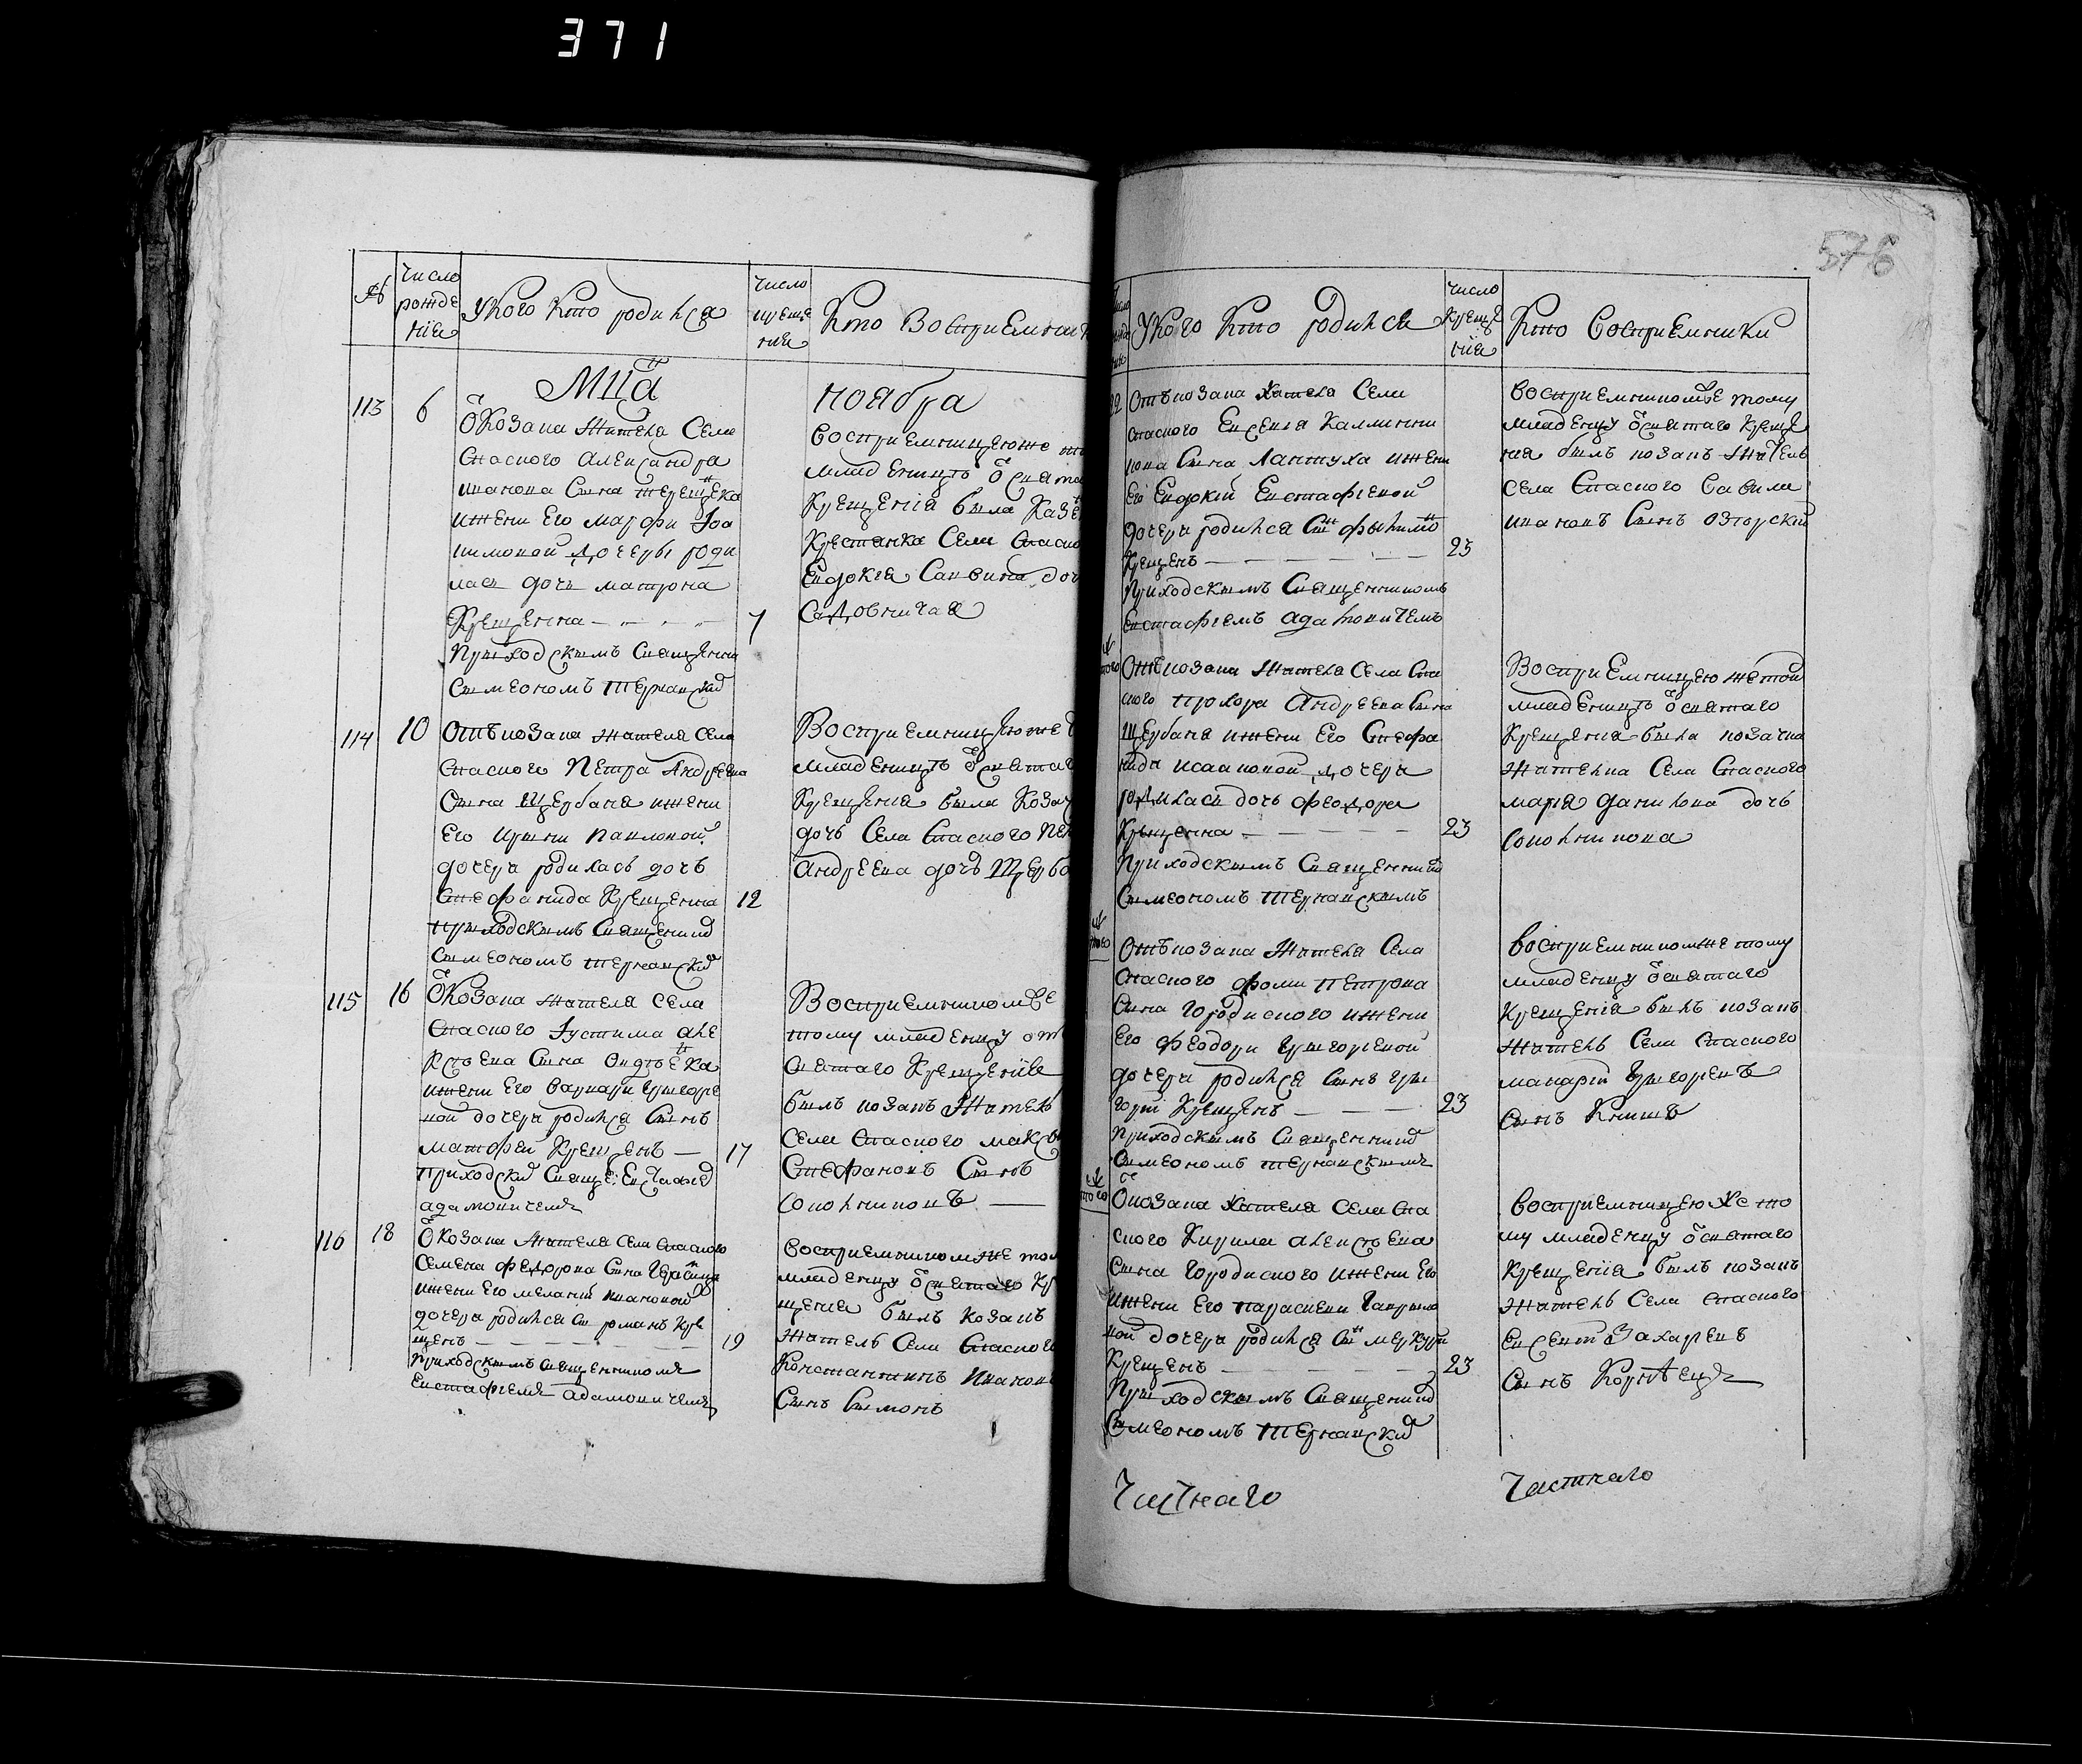 371
576
№
Число рождения
У кого кто родился
Число крещения
Кто Восприемники
Мца
ноября
113
6
Ѿ Козака жителя Села
Спаского Александра
иванова Сына терещенка
ижени Его марфи Іоа
кимовой дочери роди
лась дочь матрона
Крещенна
7
приходскимъ Священни
Симеономъ тернавски
восприемницеюже
младеницѣ ѿ свята
Крещенія была Казе
Крестянка Села Спаско
Евдокия Саввина доч
Садовничая
114
10
Отъ козака жителя Села
Спаского Петра Андреева
Сына Щербаня ижени
Его ирини Павловой
дочера родилась дочъ
Стефанида Крещенна
12
приходскимъ Священни
Симеономъ терновски
Восприемницеюже
младеницѣ ѿ святаг
Крещения была Козач
дочъ Села Спаского
Андреева дочъ Щерба
115
16
Ѿ Козака жителя села
Спаского Іустима але
ксѣева Сына
ижени Его варвари григорие
вой дочера родился Сынъ
матфей Крещенъ
17
Приходски Свяще: Евстафие
адамовичемъ
Восприемникомже
тому младенцу от
Святаго Крещения
былъ козакъ житель
Села Спаского
Стефановъ Сынъ
Сокольниковъ
116
18
Ѿ Козака жителя Села Спаского
Семена федорова Сына
ижени Его меланіи ивановой
дочера родился Сы романъ Кре
щенъ
19
приходскимъ Священникомъ
Евстафіемъ адамовичемъ
восприемникомже том
младенцу ѿ святаго Кр
щения былъ козакъ
житель Села Спаского
Константинъ Иванов
Сынъ Симонъ
У кого кто родился
Число Крещения
Кто Восприемники
22
Отъ козака жителя Села
спаского Евсевия Каллинни
кова Сына Лантуха ижени
Его Евдокіи Евстафиевой
дочера родился Сынъ филимо
Крещенъ
23
Приходскимъ Священникомъ
Евстафиемъ адамовичемъ
восприемникомже тому
младенцу ѿ святаго Креще
ния былъ козакъ житель
села Спаского Савила
ивановъ Сынъ
того
Отъ козака жителя Села Спа
ского прохора Андреева Сына
Щербаня ижени Его Стефа
ниди исааковой дочера
родилась дочь феодора
Крещенна
23
Приходскимъ Священни
Симеономъ Терновскимъ
Восприемницеюжетой
младеницѣ ѿ святаго
Крещения была козачка
Жителка Села Спаского
мария данилова дочь
Сокольникова
того
Отъ козака жителя Села
Спаского фоми петрова
Сына городиского ижени
Его феодори григориевой
дочера родился Сынъ гри
горій Крещенъ
23
приходскимъ Священни
Симеономъ терновскимъ
восприемникомже тому
младенцу ѿ святаго
Крещения былъ козакъ
житель Села Спаского
макарій григориевъ
Сынъ Книшъ
того
Ѿ козака жителя Села Спа
ского Кирила алексѣева
Сына городиского ижени Его
ижени Его параскеви гаврило
вой дочера родился Сынъ меркурі
Крещенъ
23
приходскимъ Священни
Симеономъ терновски
восприемницеюже то
му младенцу ѿ святаго
Крещения былъ козакъ
житель Села Спаского
Евсевій Захариевъ
Сынъ Корнѣецъ
Частнаго
Частнаго